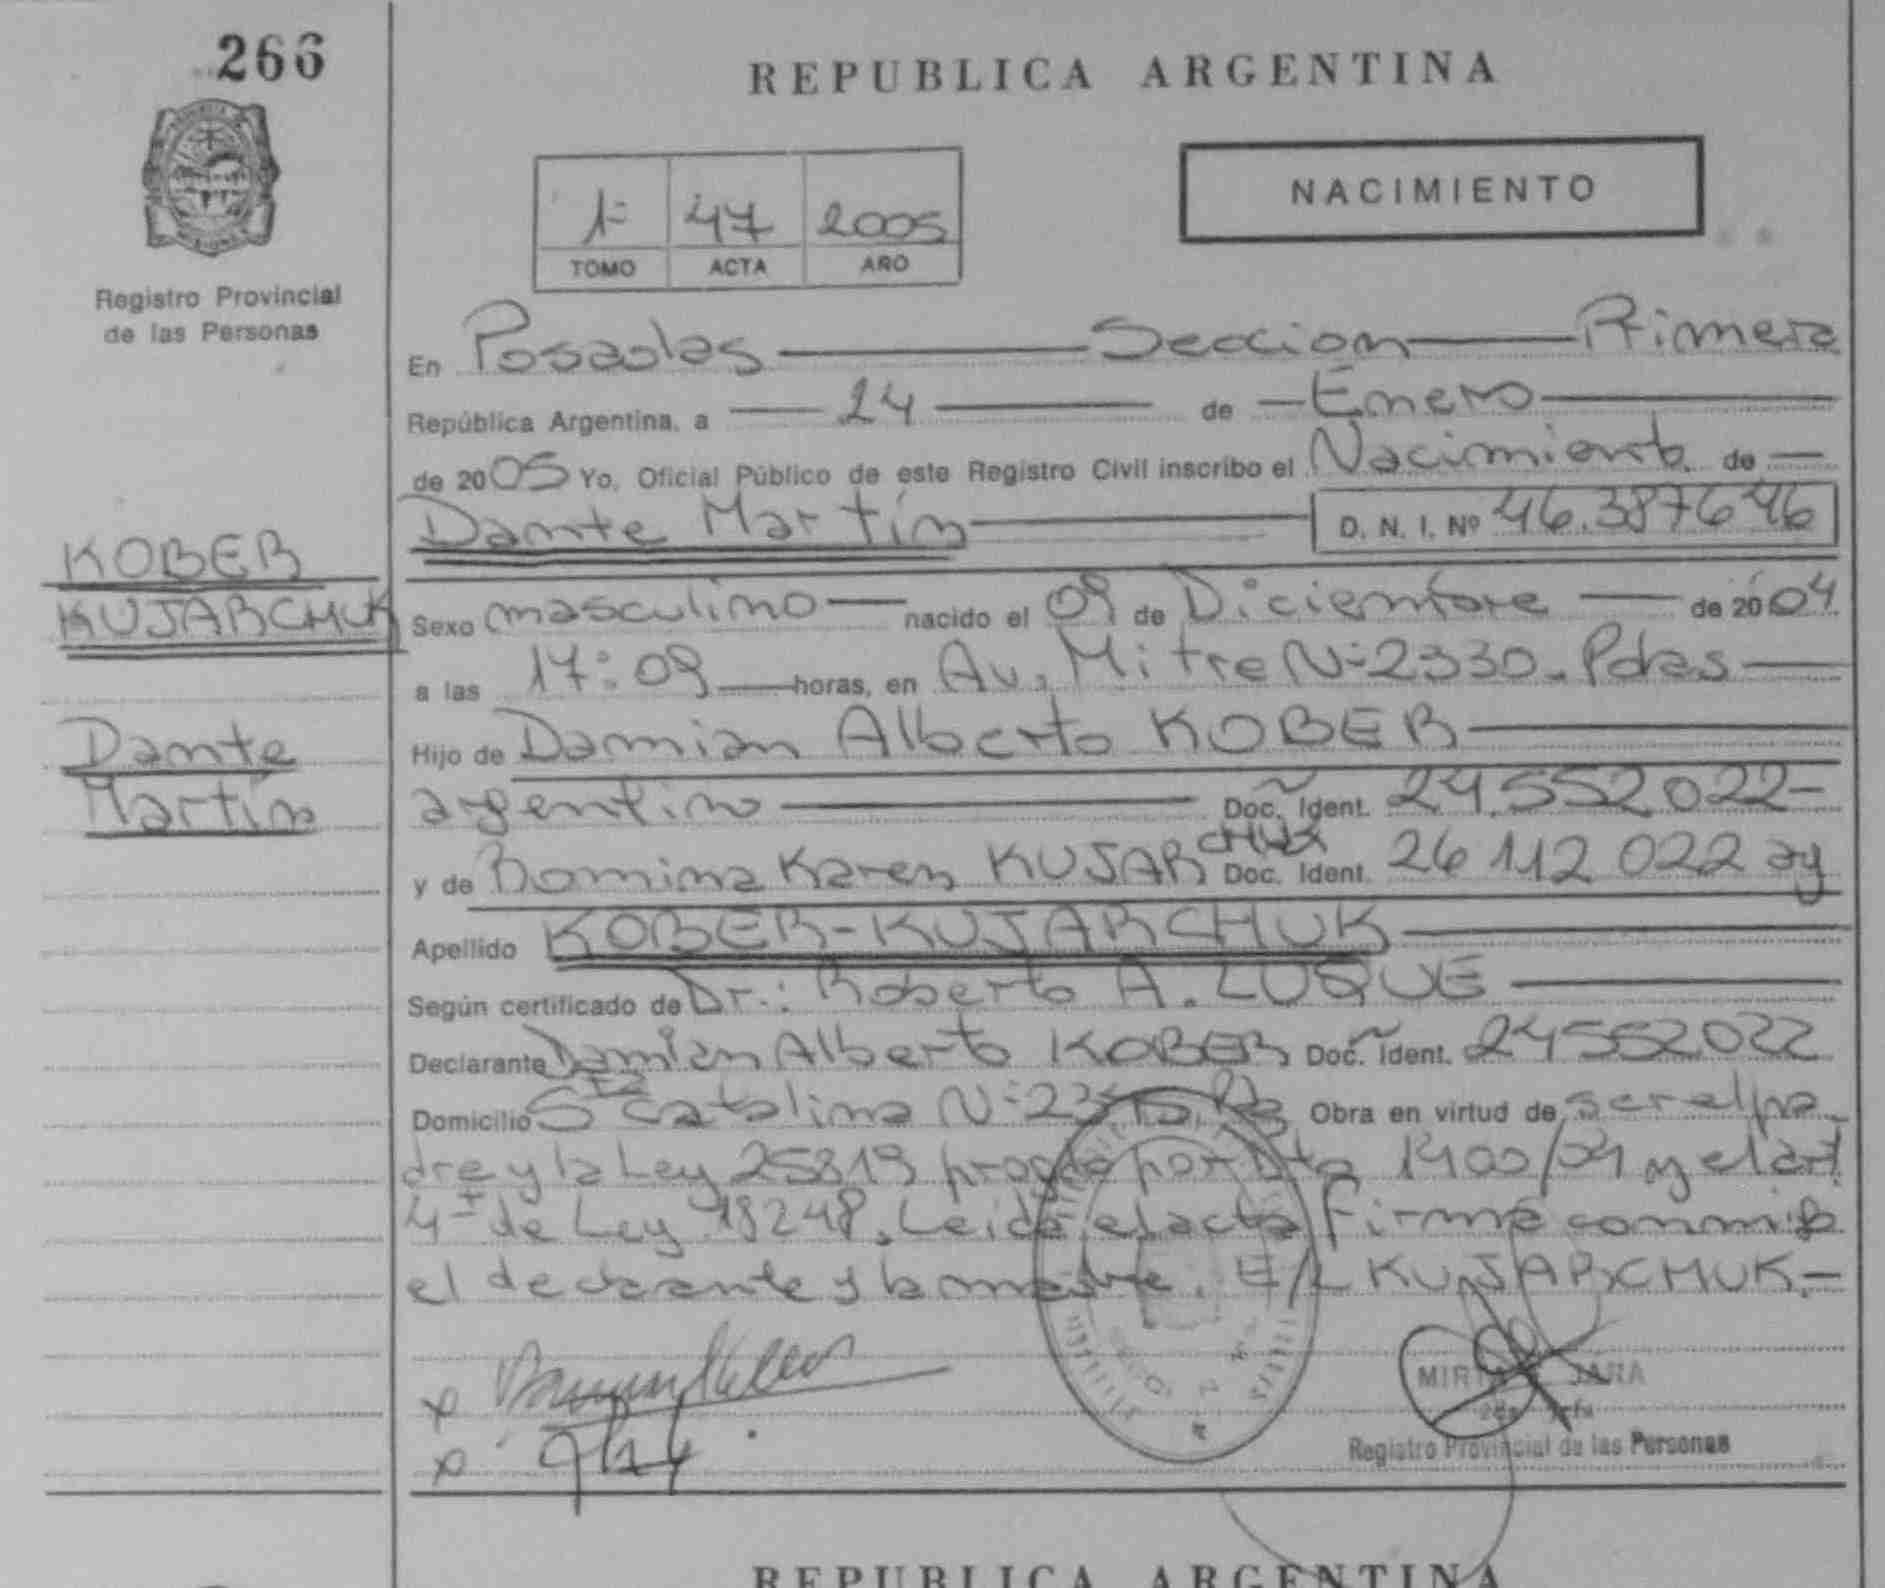 266
REPUBLICA ARGENTINA
NACIMIENTO
1º 47 2005
TOMO ACTA AÑO
Registro Provincial
de las Personas
En Posadas Seccion Primera
República Argentina, a 24 de Enero
de 2005 Yo, Oficial Público de este Registro Civil inscribo el Nacimiento de
Dante Martín D. N. I. Nº 46.387646
KOBER
KUJARCHUK
Sexo masculino nacido el 09 de Diciembre de 2004
a las 17:09 horas, en Av. Mitre Nº 2330. Pdas
Dante
Martín
Hijo de Damian Alberto KOBER
argentino Doc. Ident. 24.552022-
y de Romina Karen KUJARCHUK Doc. Ident. 26 112 022 ay
Apellido KOBER-KUJARCHUK
Según certificado de Dr.: Roberto A. LUQUE
Declarante Damian Alberto KOBER Doc. Ident. 24552022
Domicilio Sta Catalina Nº Obra en virtud de ser el pa
dre y la Ley 25819 por 1400/04 y el art
4º de Ley 18248. Leida el acta firma conmigo
el declarante y la madre. E/L KUJARCHUK.-
MIRTA JARA
Registro Provincial de las Personas
REPUBLICA ARGENTINA